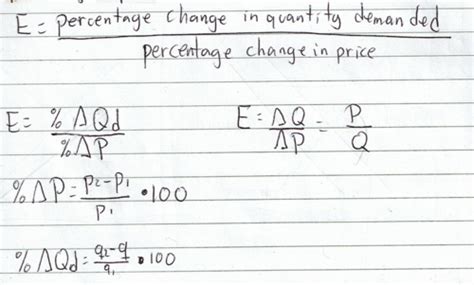 E = percentage change in quantity demanded / percentage change in price
E = %ΔQd / %ΔP    E = ΔQ/ΔP = P/Q
%ΔP = p2-p1 / p1 • 100
%ΔQd = q2-q / q1 • 100